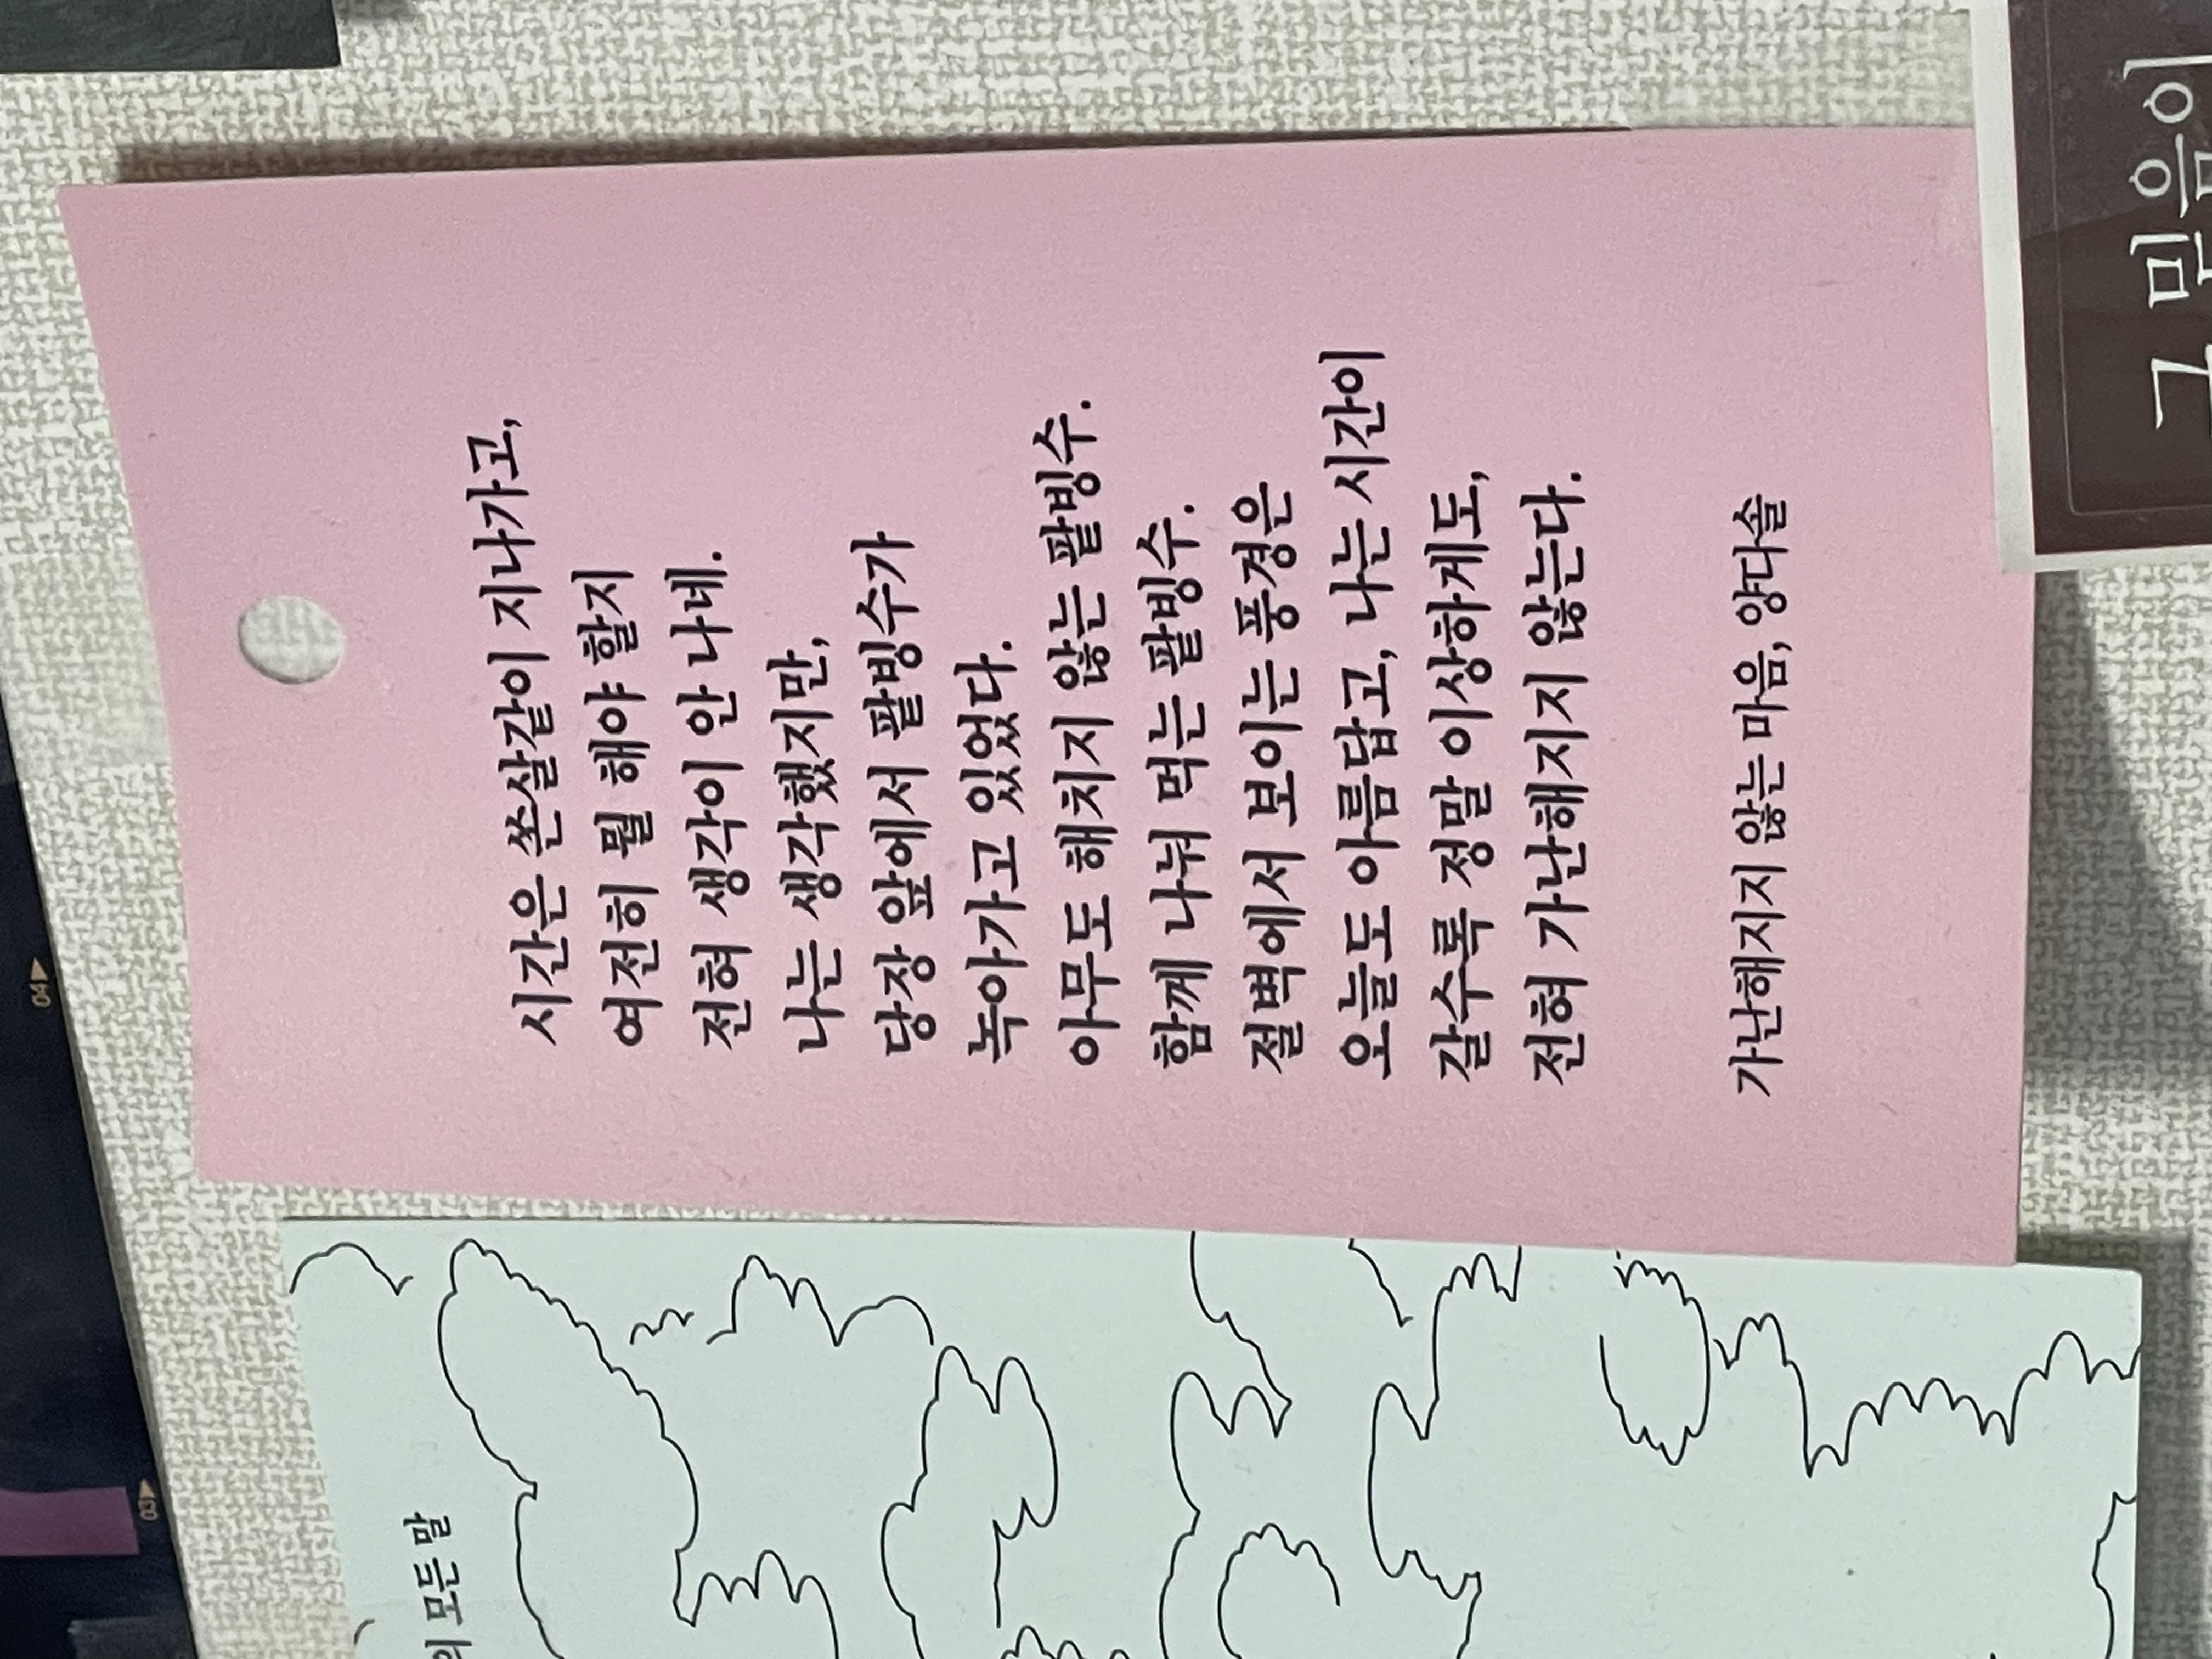 시간은 쏜살같이 지나가고,
여전히 뭘 해야 할지
전혀 생각이 안 나네.
나는 생각했지만,
당장 앞에서 팥빙수가
녹아가고 있었다.
아무도 해치지 않는 팥빙수.
함께 나눠 먹는 팥빙수.
절벽에서 보이는 풍경은
오늘도 아름답고, 나는 시간이
갈수록 정말 이상하게도,
전혀 가난해지지 않는다.
가난해지지 않는 마음, 양다솔
그 믿음이
의 모든 말
04▶
03▶